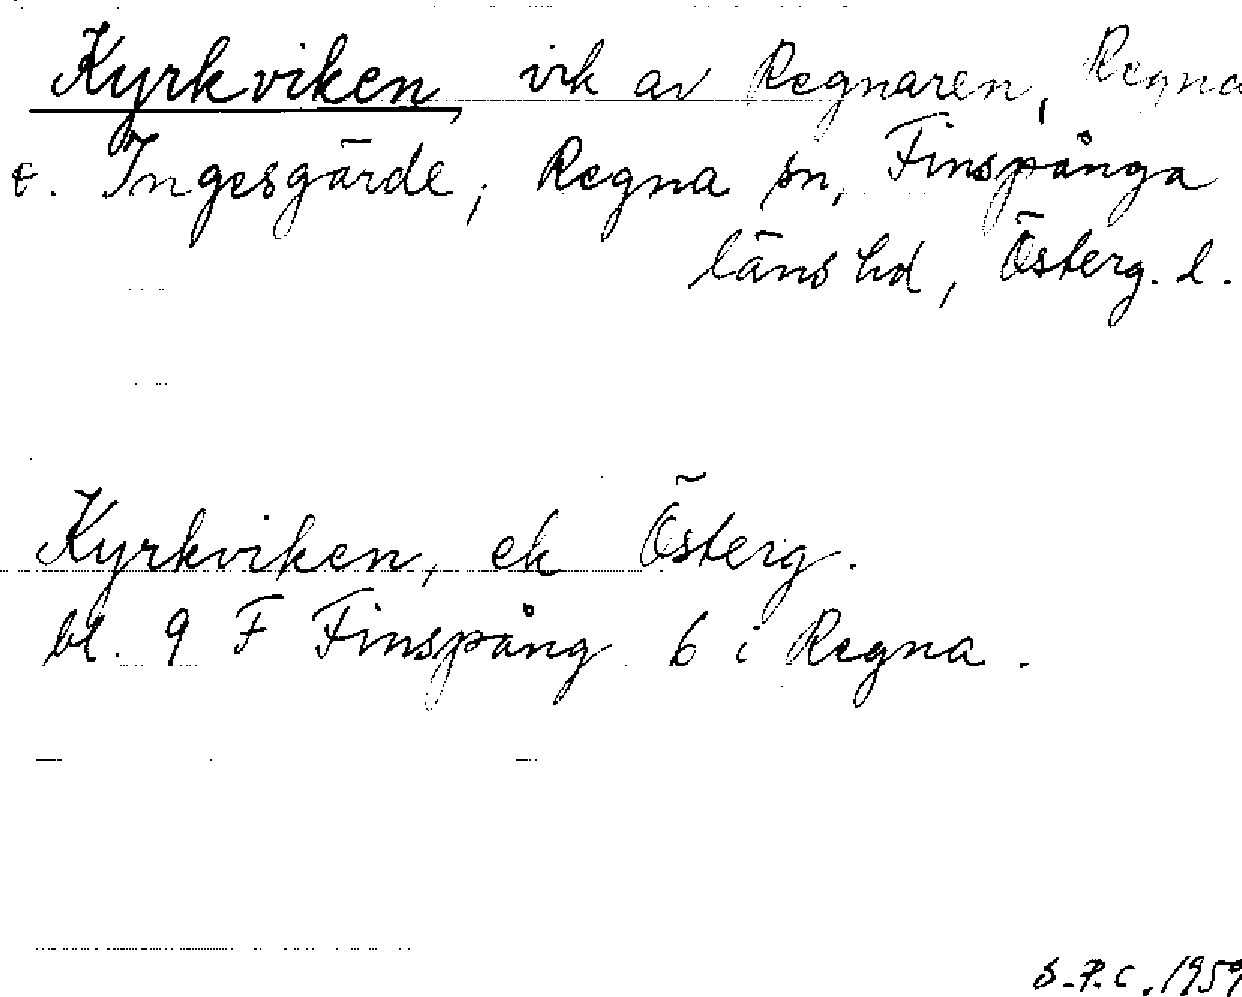 Kyrkviken, vik av Regnaren, Regna
t. Ingesgärde, Regna sn, Finspånga
läns hd, Österg. l.
Kyrkviken, ek Österg.
bl. 9 F Finspång 6 i Regna.
S.P.C. 1959